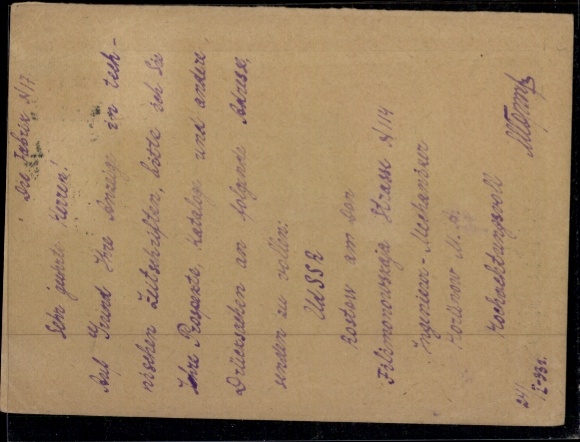 Die Fabrik 
Sehr geehrte Herren!
Auf Grund Ihre Anzeige in tech-
nischen Zeitschriften, bitte ich Sie
Ihre Prospekte, Kataloge und andere
Drucksachen an folgende Adresse,
senden zu wollen:
UdSSR
Rostow am Don
Filimonowskaja Strasse 114
Ingenieur-Mechaniker
M. A.
Hochachtungsvoll
24/I-93